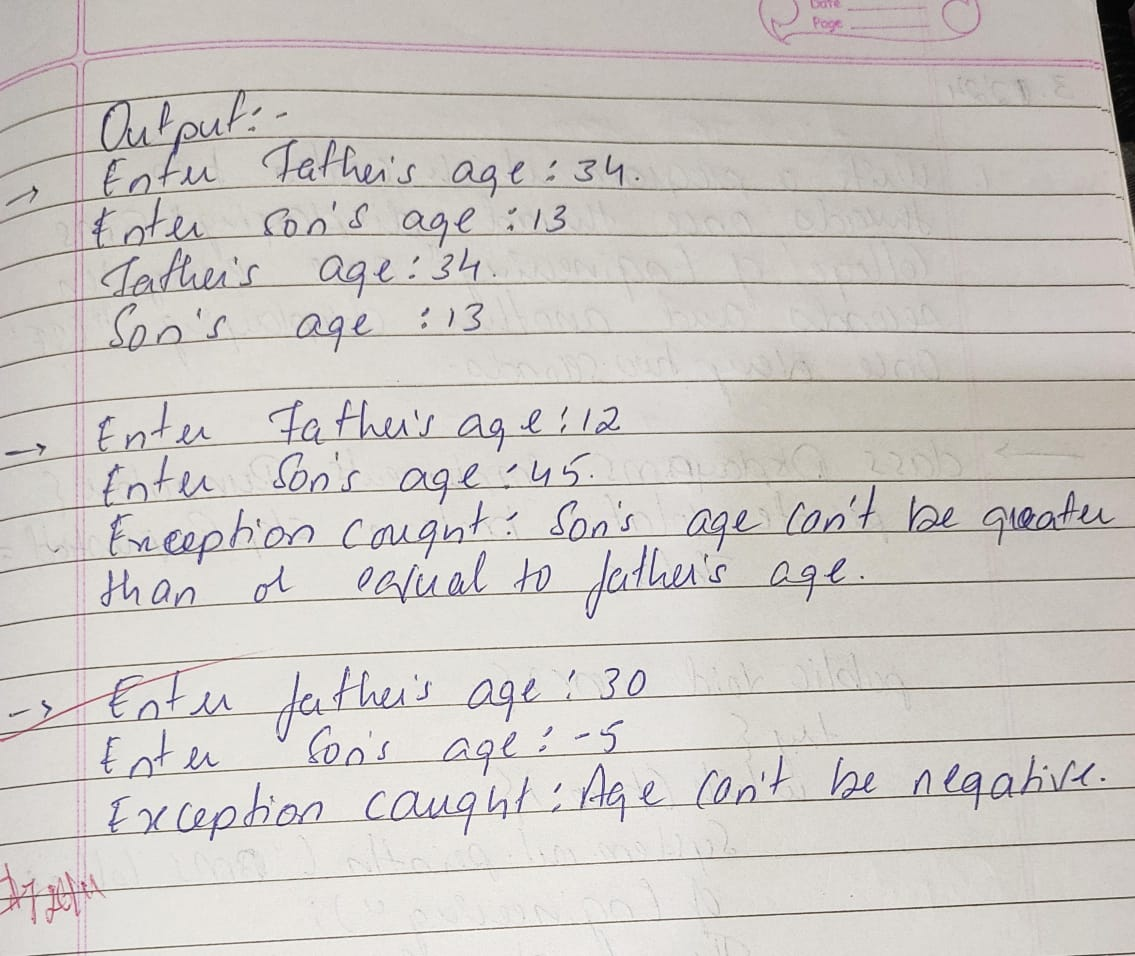 Date
Page
Output:-
→ Enter Father's age : 34.
Enter Son's age : 13
Father's age : 34.
Son's age : 13
→ Enter Father's age : 12
Enter Son's age : 45.
Exception Cougnt : Son's age can't be greater
than or equal to father's age.
→ Enter father's age : 30
Enter Son's age : -5
Exception caught : Age can't be negative.